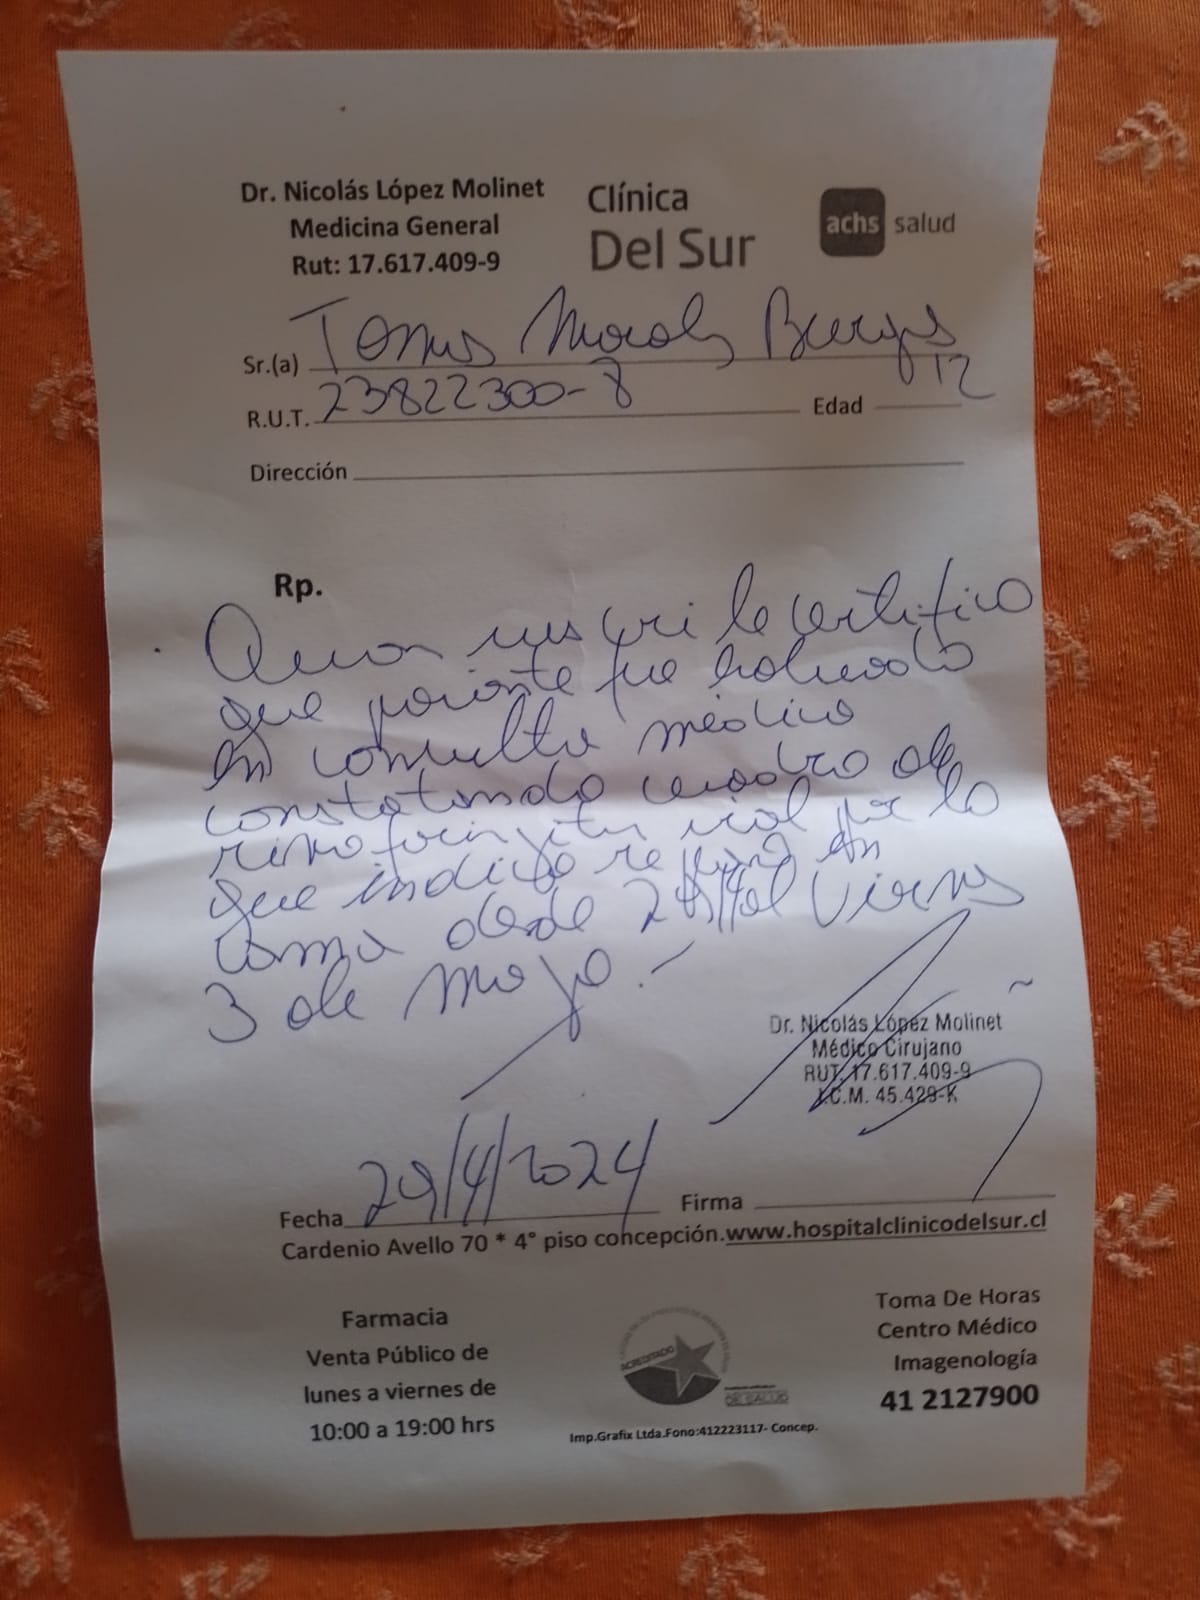 Dr. Nicolás López Molinet
Medicina General
Rut: 17.617.409-9
Clínica
Del Sur
achs salud
Sr.(a) Tomas Morales Burgos
R.U.T. 23822300-8 Edad 12
Dirección
Rp.
Quien suscribe certifica
que paciente fue evaluado
en consulta médica
constatando cuadro de
rinofaringitis viral por lo
que indico reposo en
cama desde 29/4 al Viernes
3 de mayo.-
Dr. Nicolás López Molinet
Médico Cirujano
RUT. 17.617.409-9
I.C.M. 45.429-K
Fecha 29/4/2024 Firma
Cardenio Avello 70 * 4° piso concepción.www.hospitalclinicodelsur.cl
Farmacia
Venta Público de
lunes a viernes de
10:00 a 19:00 hrs
ACREDITADO
DE SALUD
Imp.Grafix Ltda.Fono:412223117- Concep.
Toma De Horas
Centro Médico
Imagenología
41 2127900